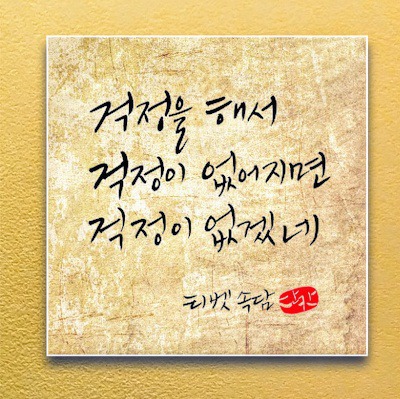 걱정을 해서
걱정이 없어지면
걱정이 없겠네
티벳 속담